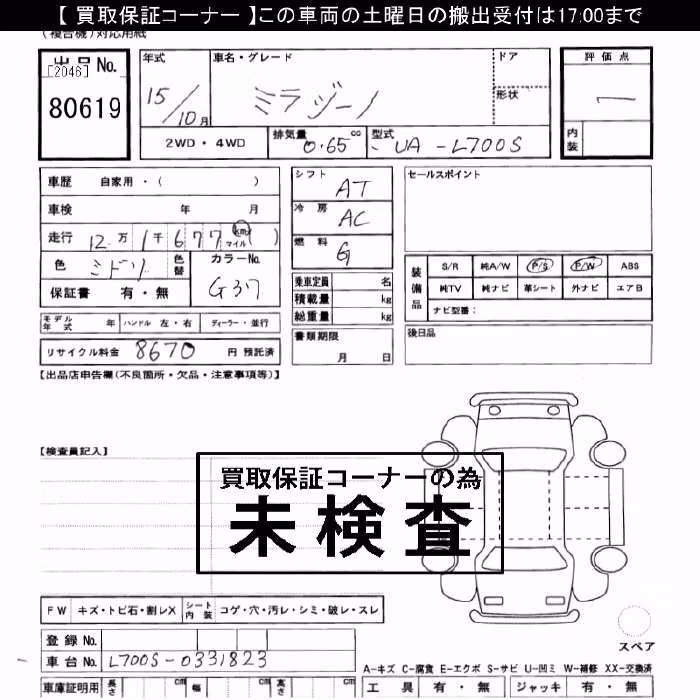 【 買取保証コーナー 】この車両の土曜日の搬出受付は17:00まで
(複合機)対応用紙
出品 No. 年式 車名・グレード ドア 評価点
[2046]
80619 15/10月 ミラジーノ 形状 一
2WD・4WD 排気量 0.65 cc 型式 UA-L700S 内装
車歴 自家用・( ) シフト AT セールスポイント
車検 年 月 冷房 AC
走行 12万1千677 km マイル ( ) 燃料 G
色 ミドリ 色替 カラーNo. G37 装備品 S/R 純A/W P/S P/W ABS
保証書 有・無 乗車定員 名 純TV 純ナビ 革シート 外ナビ エアB
積載量 kg ナビ型番:
モデル年式 年 ハンドル 左・右 ディーラー・並行 総重量 kg
リサイクル料金 8670 円 預託済 書類期限 月 日 後日品
【出品店申告欄(不良箇所・欠品・注意事項等)】
【検査員記入】
買取保証コーナーの為
未検査
FW キズ・トビ石・割レX シート内装 コゲ・穴・汚レ・シミ・破レ・スレ
登録 No. スペア
車台 No. L700S-0331823 A-キズ C-腐食 E-エクボ S-サビ U-凹ミ W-補修 XX-交換済
車庫証明用 長さ cm 幅 cm 高さ cm 工具 有・無 ジャッキ 有・無